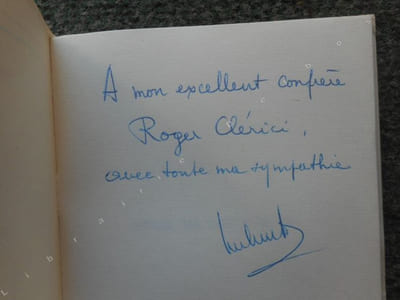 A mon excellent confrère
Roger Clérici,
avec toute ma sympathie